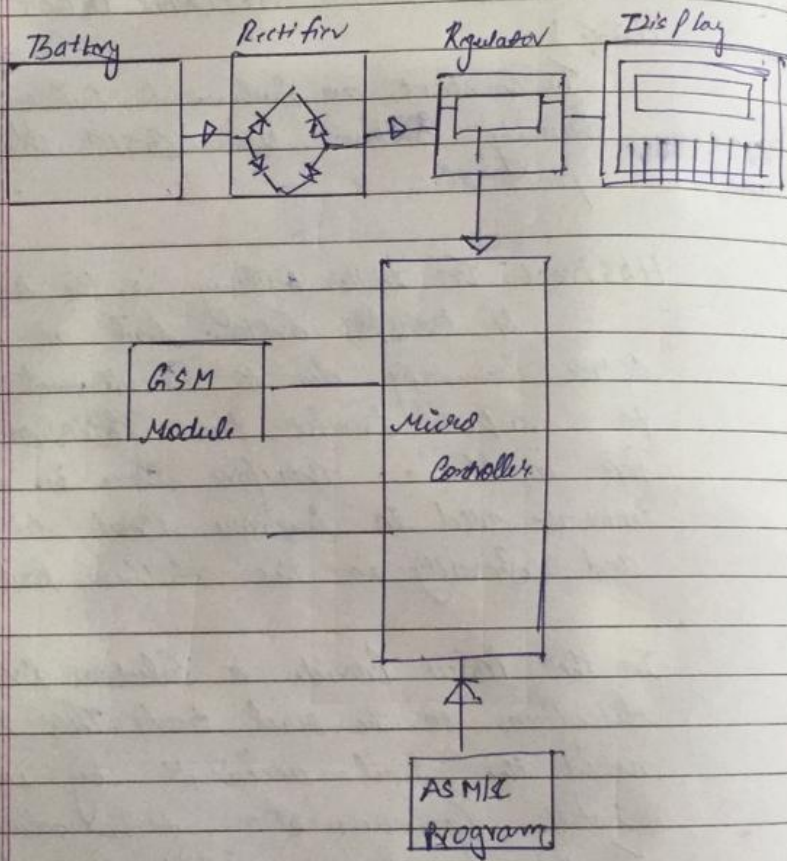 Battery
Rectifier
Regulator
Display
GSM
Module
Micro
Controller
ASM/C
Program